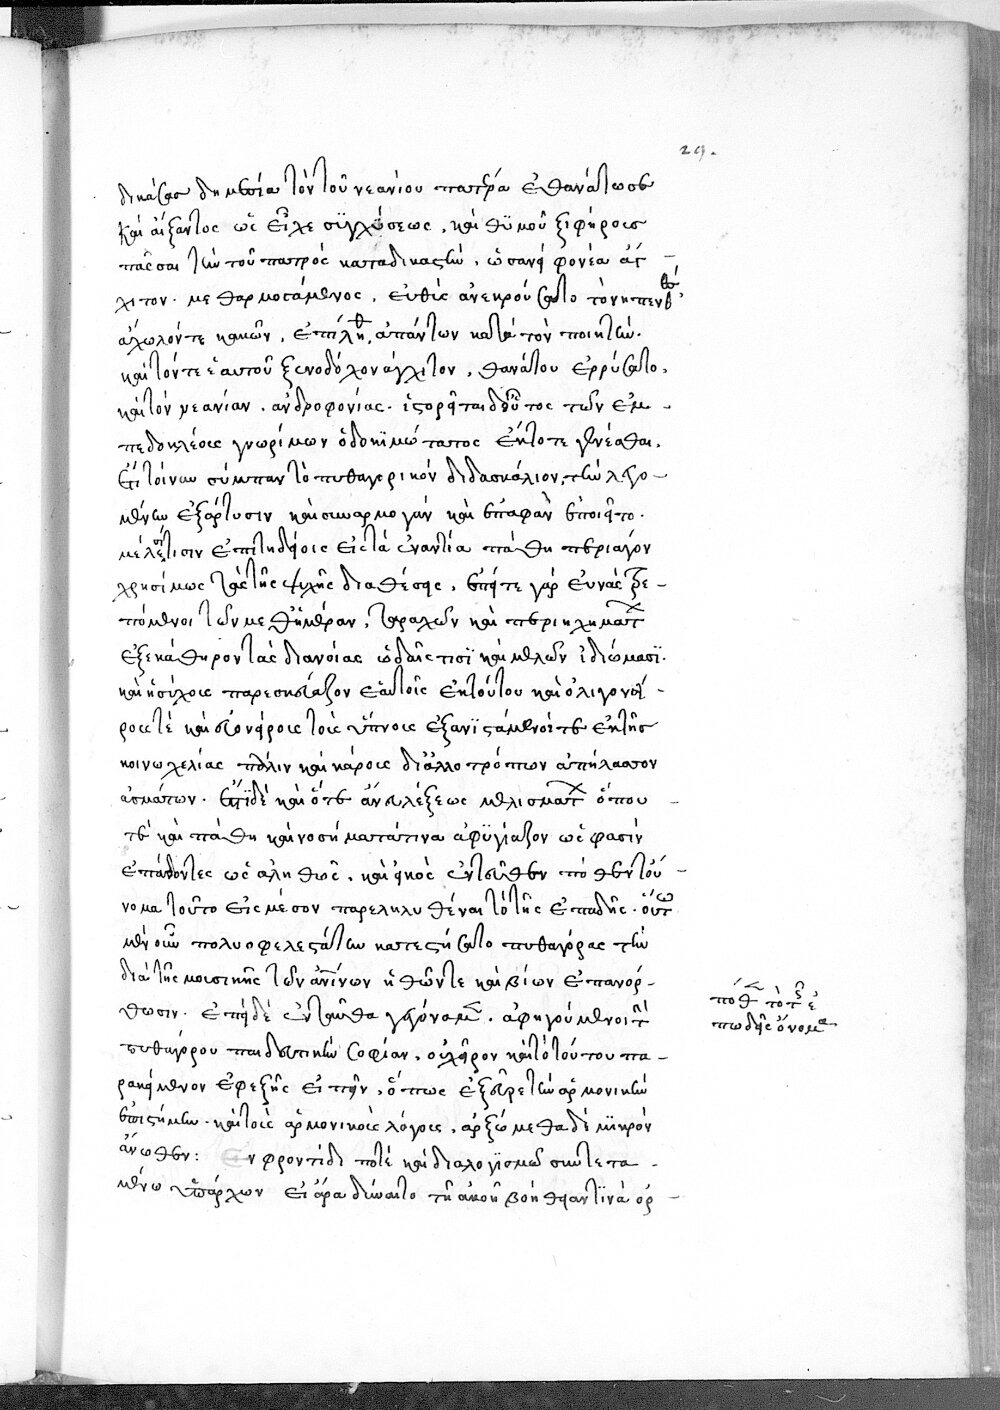 29.
δικάσας δημοσία τὸν τοῦ νεανίου πατέρα ἐθανάτωσε
καὶ ἀΐξαντος ὡς εἶχε συγχύσεως, καὶ θυμοῦ ξιφήροις
παῖσαι τὸν τοῦ πατρὸς καταδικαστὴν, ὡσανεὶ φονέα ἀγ-
χιτον. μεθαρμοσάμενος, εὐθὺς ἀνεκρούσατο τὸ νηπενθὲς
ἀχολόν τε κακῶν, ἐπίληθον ἁπάντων κατὰ τὸν ποιητὴν.
καὶ τόν τε ἑαυτοῦ ξενοδόχον ἀγχιτον, θανάτου ἐρρύσατο,
καὶ τὸν νεανίαν. ἀνδροφονίας. ἱστορεῖται δ' οὗτος τῶν ἐμ-
πεδοκλέους γνωρίμων ὁ δοκιμώτατος ἔκτοτε γενέσθαι.
ἔτι τοίνυν σύμπαν τὸ πυθαγορικὸν διδασκάλιον, τὴν λεγο-
μένην ἐξάρτυσιν καὶ συναρμογὰν καὶ ἐπαφὰν ἐποιεῖτο.
μέλεσί τισιν ἐπιτηδείοις εἰς τὰ ἐναντία πάθη περιάγον
χρησίμως τὰς τῆς ψυχῆς διαθέσεις, ἐπί τε γὰρ εὐνὰς τρε-
πόμενοι τῶν μεθ' ἡμέραν, ταραχῶν καὶ περιηχημάτων
ἐξεκάθηρον τὰς διανοίας ᾠδαῖς τισὶ καὶ μελῶν ἰδιώμασι.
καὶ ἡσύχους παρεσκεύαζον ἑαυτοῖς ἐκ τούτου καὶ ὀλιγονεί-
ρους τὲ καὶ εὐονείρους τοὺς ὕπνους ἐξανιστάμενοί τε ἐκ τῆς
κοίτης νωχελίας πάλιν καὶ κάρους δι' ἀλλοτρόπων ἀπήλασσον
ἀσμάτων. ἔτι δὲ καὶ ὅτε ἄνευ λέξεως μελισμάτων ὅπου
τὲ καὶ πάθη καὶ νοσήματά τινα ἀφυγίαζον ὡς φασὶν
ἐπάδοντες ὡς ἀληθῶς, καὶ εἰκὸς ἐντεῦθεν πόθεν τοὔ-
νομα τοῦτο εἰς μέσον παρεληλυθέναι τὸ τῆς ἐπῳδῆς. οὕτω
μὲν οὖν πολυωφελεστάτην κατεστήσατο πυθαγόρας τὴν
διὰ τῆς μουσικῆς τῶν ἀνθρωπίνων ἠθῶν τε καὶ βίων ἐπανόρ-
θωσιν. ἐπεὶ δὲ ἐνταῦθα γεγόναμεν. ἀφηγούμενοι τὴν
πυθαγόρου παιδευτικὴν σοφίαν, οὐ χεῖρον καὶ τὸ τούτου πα-
ρακείμενον ἐφεξῆς εἰπεῖν, ὅπως ἐξεῦρε τὴν ἁρμονικὴν
ἐπιστήμην. καὶ τοὺς ἁρμονικοὺς λόγους, ἀρξώμεθα δὲ μικρὸν
ἄνωθεν: Ἐν φροντίδι ποτὲ καὶ διαλογισμῶ συντετα-
μένω ὑπάρχων εἰ ἄρα δύναιτο τῆ ἀκοῆ βοήθειάν τινὰ ὀρ-
πόθεν τὸ τῆς ἐ
πωδῆς ὄνομα